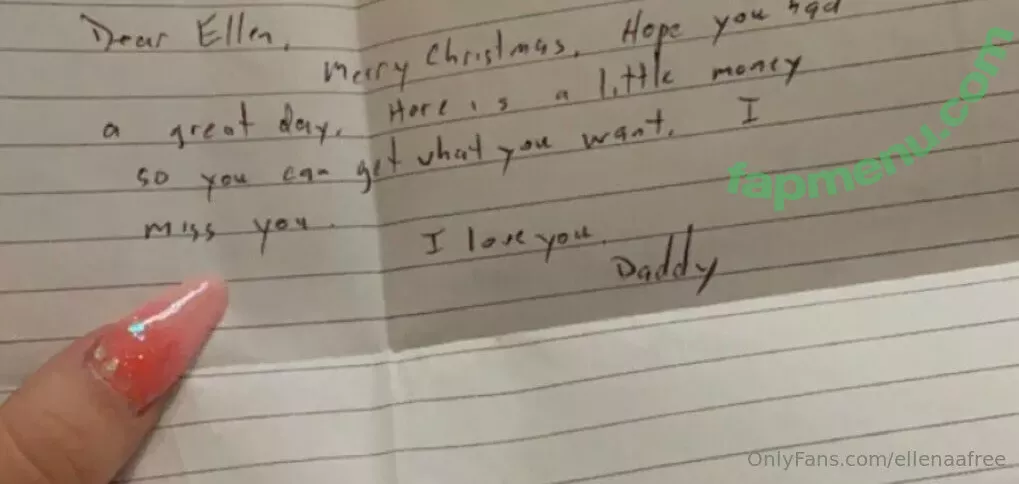 Dear Ellen,
Merry Christmas. Hope you had
a great day. Here is a little money
so you can get what you want. I
miss you.
I love you.
Daddy
fapmenu.com
OnlyFans.com/ellenaafree